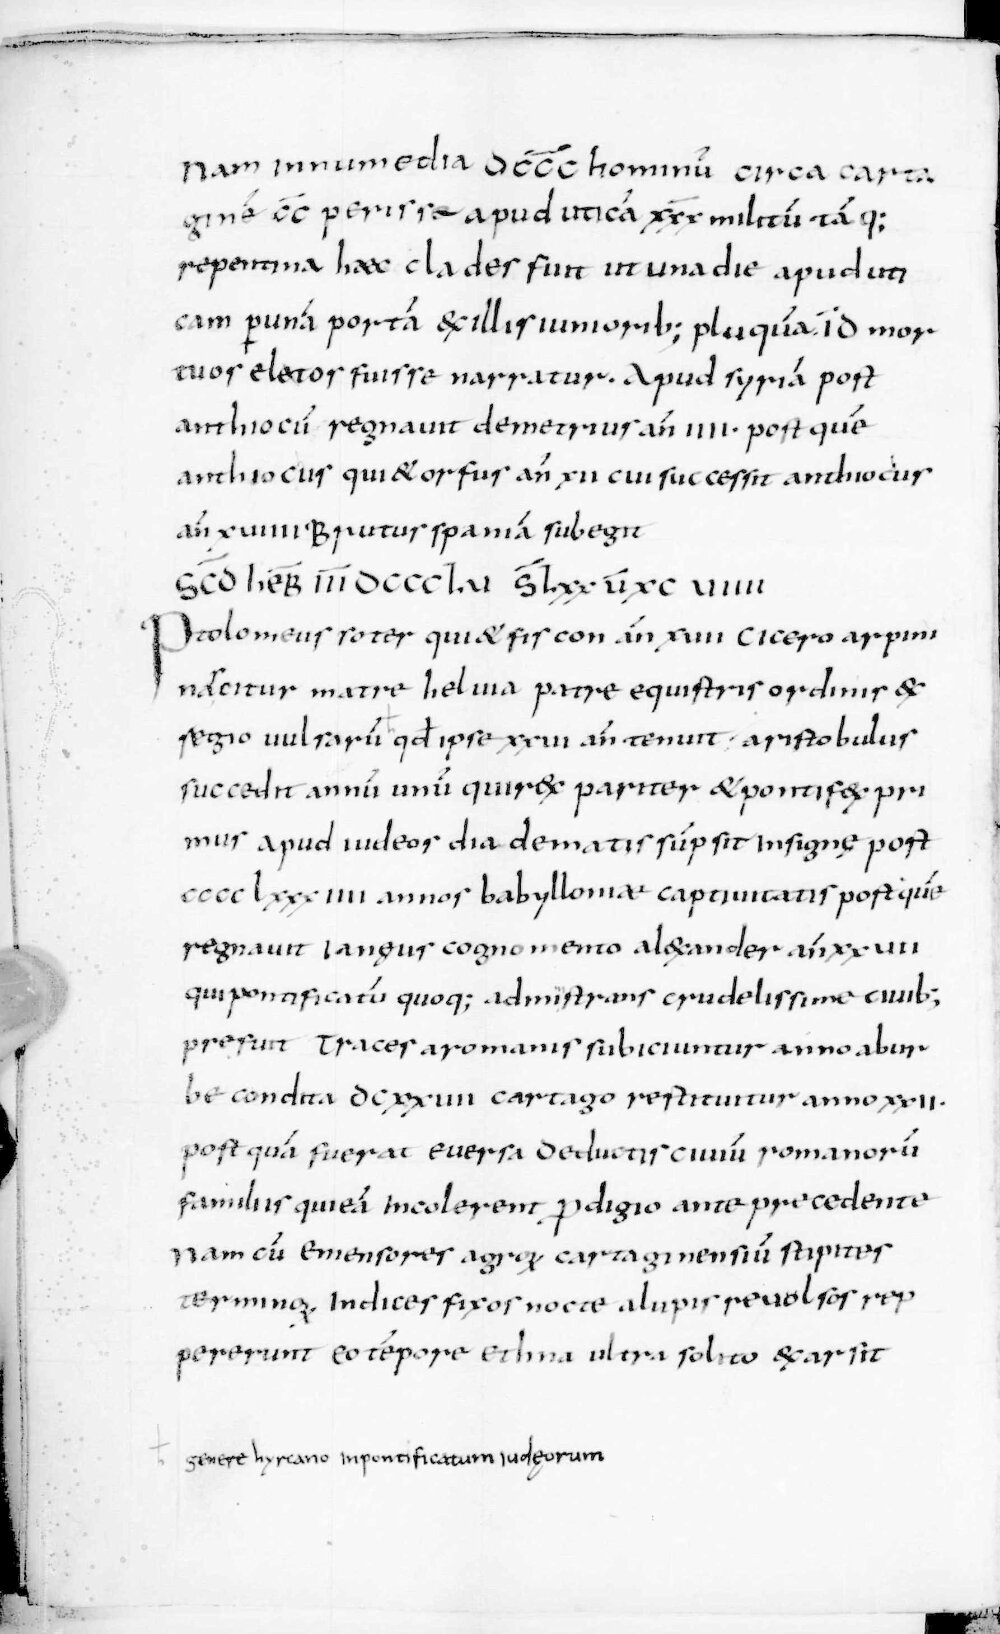 Nam innumedia DC̅C̅C hominū circa carta
ginē C̅C perisse apud uticā x̅x̅x militū tā q;
repentina haec clades fuit ut una die apud uti
cam ꝑ unā portā & illis iuniorib; plu quā ĪD mor
tuos eletos fuisse narratur. Apud syriā post
anthiocū regnauit demetrius an̄ IIII. post quē
anthiocus qui & orfus an̄ xii cui successit anthiocus
an̄ xuiiii Brutus spaniā subegit
Sc̅d heb̅ I̅I̅I̅ DCCCLVI S̅ Lxx u̅ xc uiiii
Ptolomeus soter qui & fiscon an̄ xuii Cicero arpini
nascitur matre heluia patre equistris ordinis &
segio uulsarū qđ ipse xxui an̄ tenuit. aristobulus
succedit annū unū qui rex pariter & pontifex pri
mus apud iudeos diadematis sūpsit insignę post
cccc lxxx iiii annos babylloniae captiuitatis post quē
regnauit ianęus cognomento alexander an̄ xx uii
qui pontificatū quoq; administrans crudelissime ciuib;
prefuit Traces a romanis subiciuntur anno ab ur
be condita DCxxuiii cartago restituitur anno xxii.
post quā fuerat euersa deductis ciuiū romanorū
familiis qui eā incolerent ꝓdigio ante precedente
Nam cū emensores agroꝝ cartaginensiū stipites
terminoꝝ indices fixos nocte a lupis reuolsos rep
pererunt eo tēpore ethna ultra solito exarsit
genere hyrcano in pontificatum iudęorum